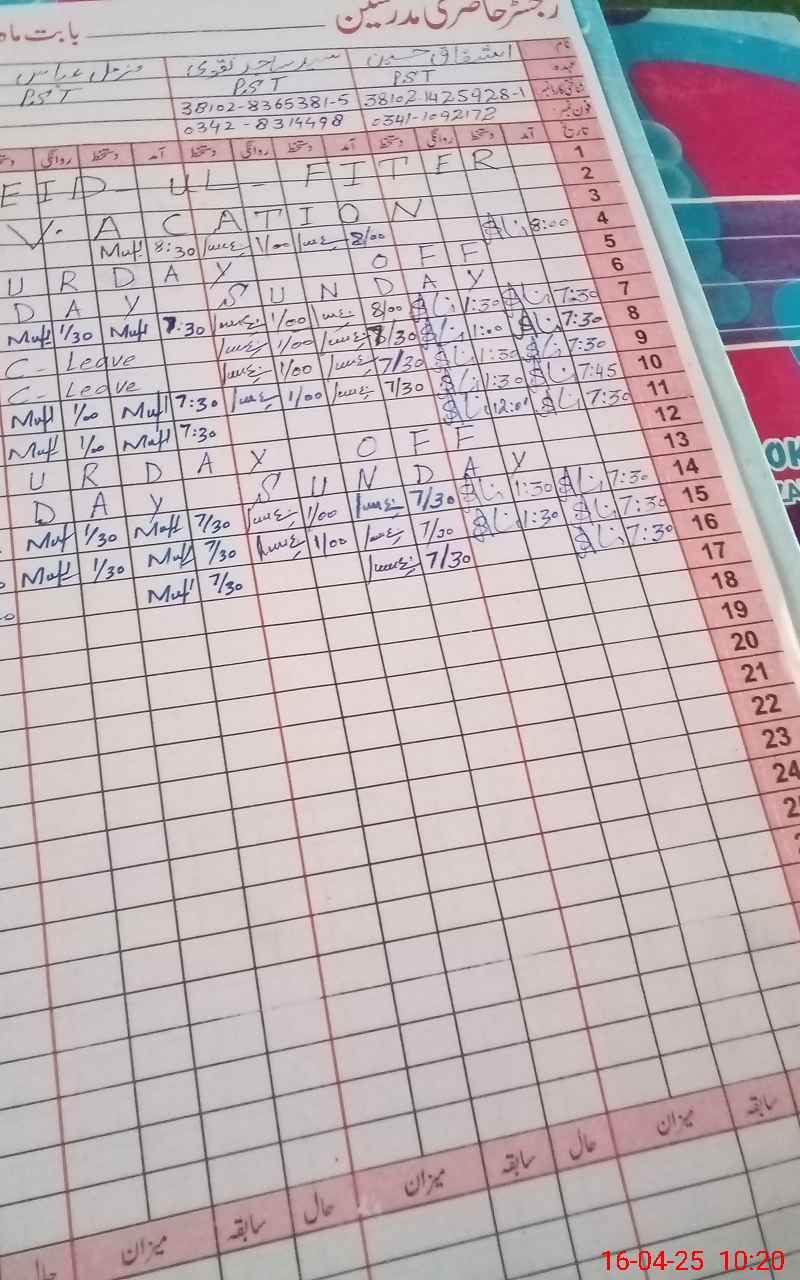 رجسٹر حاضری مدرسین بابت ماہ
نام اشفاق حسین سید ساجد نقوی مزمل عباس
عہدہ PST PST PST
شناختی کارڈ نمبر 38102-1425928-1 38102-8365381-5
فون نمبر 0341-1092172 0342-8314498
تاریخ آمد دستخط روانگی دستخط آمد دستخط روانگی دستخط آمد دستخط روانگی
1
EID-UL-FITER 2
VACATION 3
Muf 8:30 1/00 8/00 8:00 4
URDAY OFF 5
DAY SUNDAY 6
Muft 1/30 Muft 7:30 1/00 8/00 1:30 7:30 7
C-Leave 1/00 7/30 1:00 7:30 8
C-Leave 1/00 7/30 1:30 7:30 9
Muft 1/00 Muft 7:30 1/00 7/30 1:30 7:45 10
Muft 1/00 Muft 7:30 12:01 7:30 11
URDAY OFF 12
DAY SUNDAY 13
Muft 1/30 Muft 7/30 1/00 7/30 1:30 7:30 14
Muft 1/30 Muft 7/30 1/00 7/30 1:30 7:30 15
Muft 7/30 7/30 7:30 16
17
18
19
20
21
22
23
24
سابقہ میزان حال سابقہ میزان حال سابقہ میزان حال
16-04-25 10:20